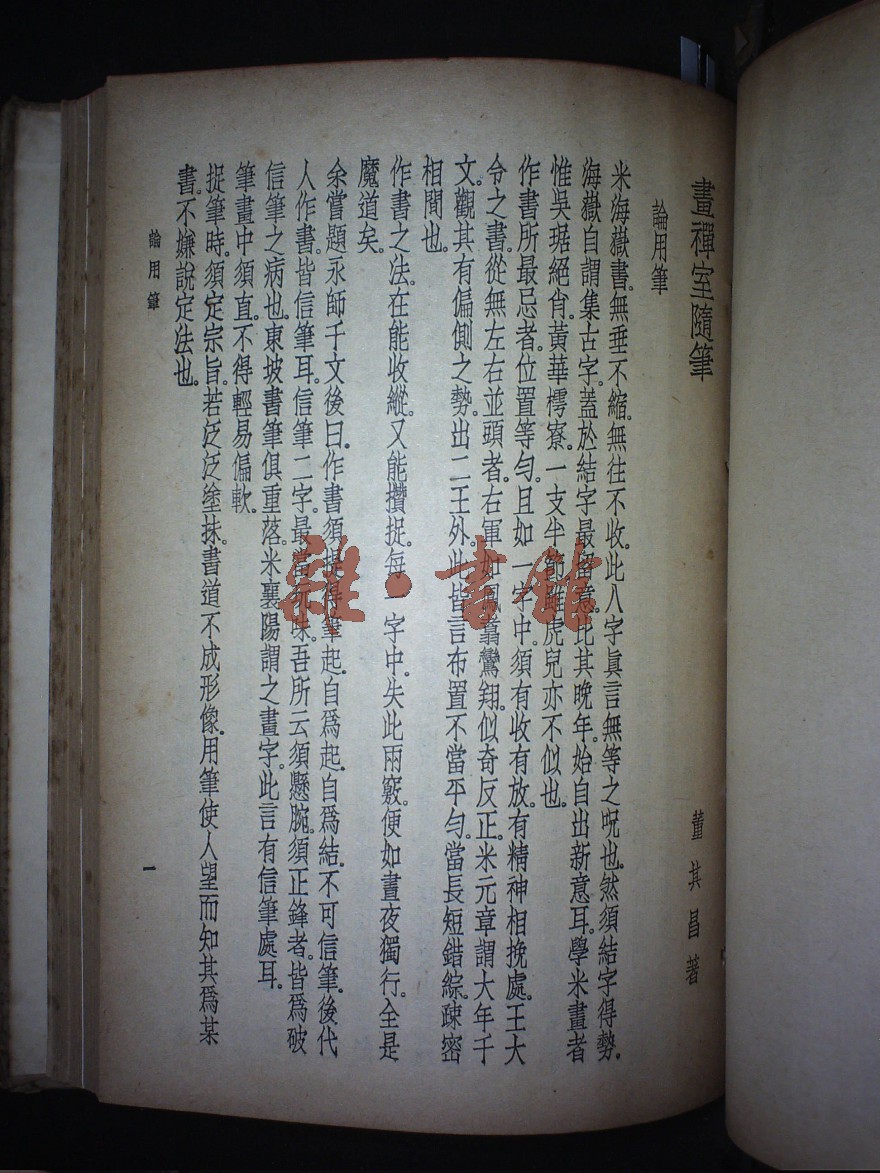 畫禪室隨筆
董其昌著
論用筆
米海嶽書。無垂不縮。無往不收。此八字眞言無等之呪也。然須結字得勢。
海嶽自謂集古字。蓋於結字最留意。比其晚年。始自出新意耳。學米畫者
惟吳琚絕肖。黃華樗寮。一支半節。雖虎兒亦不似也。
作書所最忌者。位置等勻。且如一字中。須有收有放。有精神相挽處。王大
令之書。從無左右並頭者。右軍如鳳翥鸞翔。似奇反正。米元章謂大年千
文。觀其有偏側之勢。出二王外。此皆言布置不當平勻。當長短錯綜。疎密
相間也。
作書之法。在能收縱。又能攢捉。每一字中。失此兩竅。便如晝夜獨行。全是
魔道矣。
余嘗題永師千文後曰。作書須提得筆起。自爲起。自爲結。不可信筆。後代
人作書。皆信筆耳。信筆二字。最當所味。吾所云須懸腕。須正鋒者。皆爲破
信筆之病也。東坡書筆俱重落。米襄陽謂之畫字。此言有信筆處耳。
筆畫中須直。不得輕易偏軟。
捉筆時。須定宗旨。若泛泛塗抹。書道不成形像。用筆使人望而知其爲某
書。不嫌說定法也。
論用筆
一
雜·書館